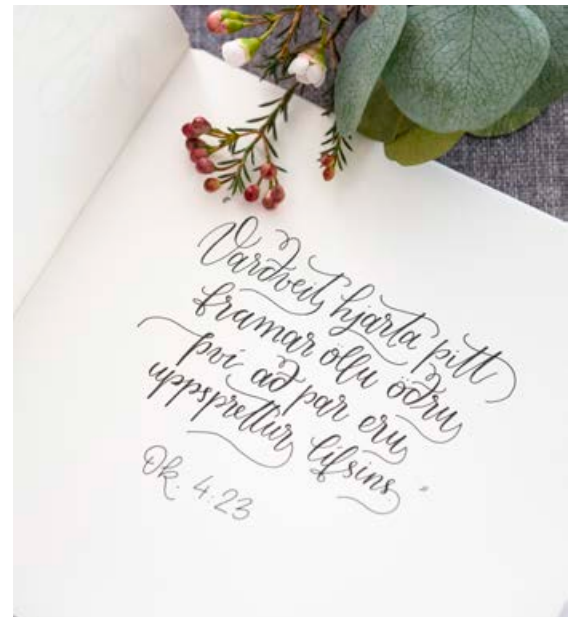 Varðveit hjarta þitt
framar öllu öðru
því að þar eru
uppsprettur lífsins.
Ok. 4:23